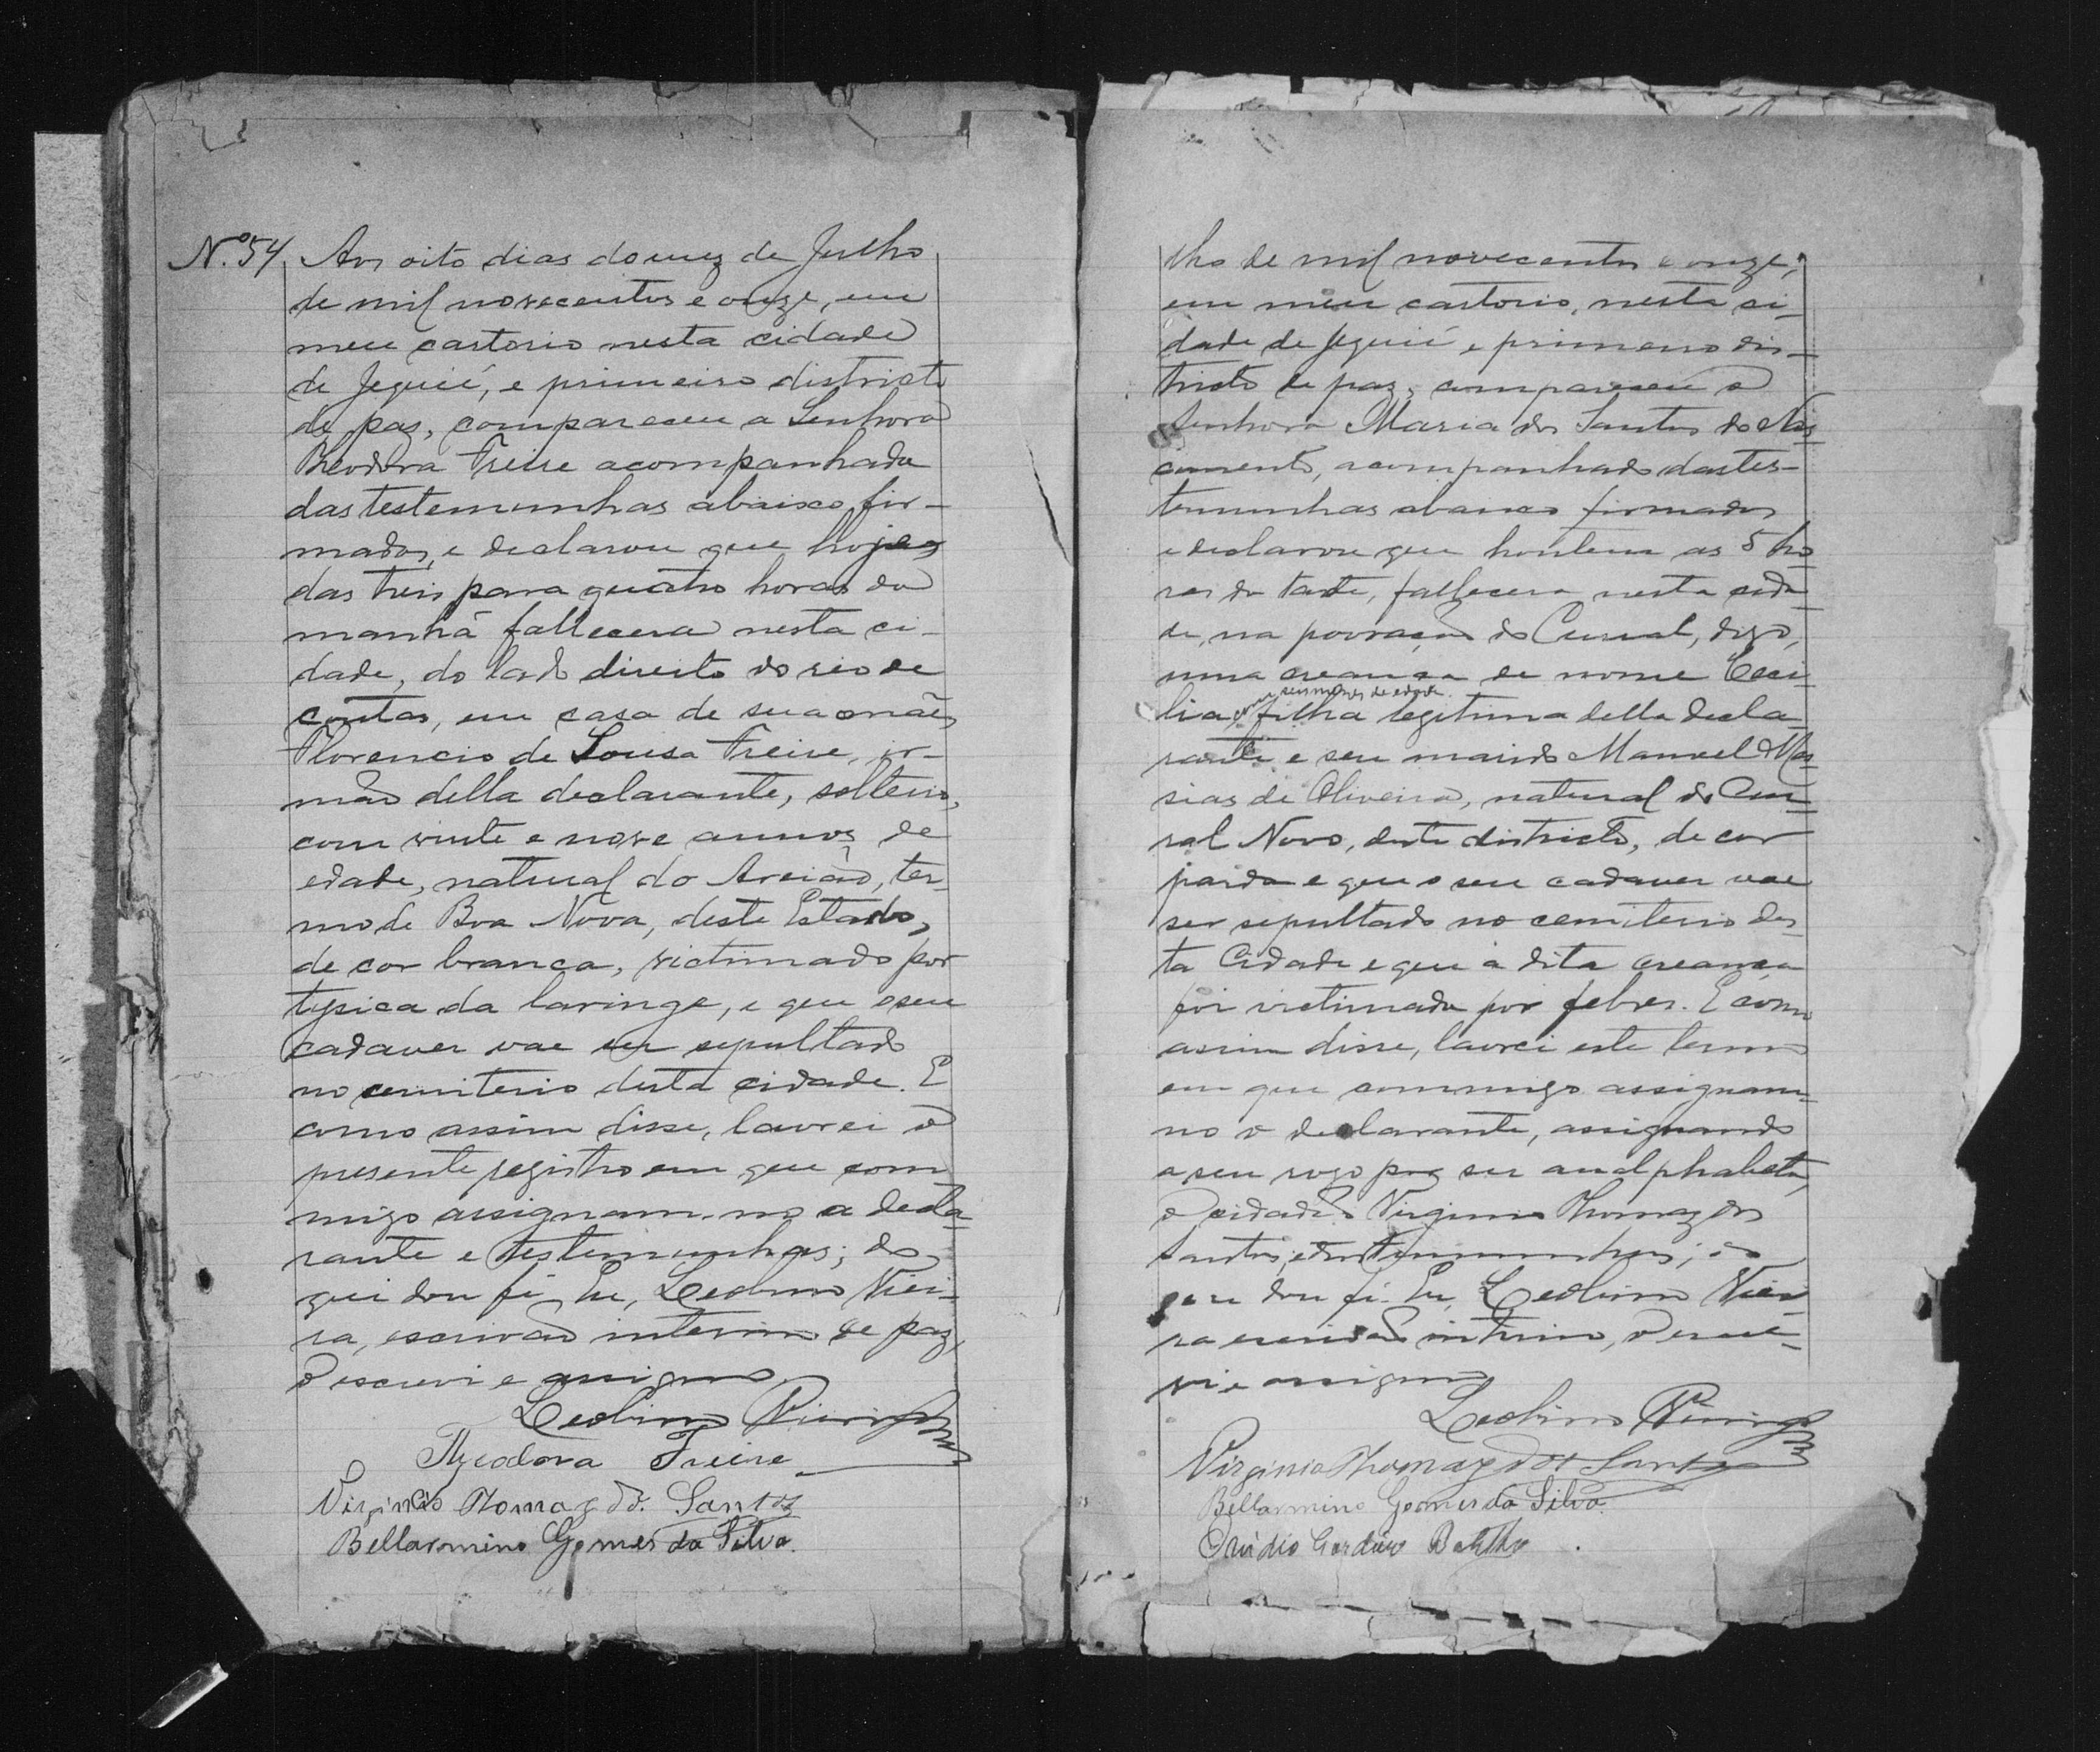 Nº 54 Aos oito dias do mez de Julho
de mil novecentos e onze, em
meu cartorio nesta cidade
de Jequié, e primeiro districto
de paz, compareceu a Senhora
Theodora Freire acompanhada
das testemunhas abaixo fir-
madas, e declarou que hoje
das treis para quatro horas da
manhã fallecera nesta ci-
dade, do lado direito do rio de
contas, em casa de sua mãe,
Florencio de Sousa Freire, ir-
mão della declarante, solteiro,
com vinte e nove annos de
edade, natural do Areião, ter-
mo de Boa Nova, deste Estado,
de cor branca, victimado por
tysica da laringe, e que o seu
cadaver vae ser sepultado
no cemiterio desta cidade. E
como assim disse, lavrei o
presente registro em que com
migo assignam-no a decla-
rante e testemunhas; do
que dou fé. Eu, Leolino Viei-
ra, escrivão interino de paz,
o escrevi e assigno
Leolino Vieira
Theodora Freire
Virginio Tomaz do. Santos
Bellarmino Gomes da Silva.
lho de mil novecentos e onze,
em meu cartorio, nesta ci-
dade de Jequié e primeiro dis-
tricto de paz, compareceu a
Senhora Maria dos Santos do Nas-
cimento, acompanhado das tes-
temunhas abaixo firmados
e declarou que hontem as 5 ho
ras da tarde, fallecera nesta cida-
de, na povoação do Curral, digo,
uma creança de nome Ceci-
com seis mezes de edade.
lia, filha legitima della decla
rante e seu marido Manoel Mes-
sias de Oliveira, natural do Cur-
ral Novo, deste districto, de cor
parda e que o seu cadaver vae
ser sepultado no cemiterio des-
ta Cidade e que a dita creança
foi victimada por febres. E como
assim disse, lavrei este termo
em que commigo assignam-
no o declarante, assignando
a seu rogo por ser analphabeta,
o cidadão Virginio Thomaz dos
Santos, e testemunhas; do
que dou fé. Eu, Leolino Viei-
ra escrivão interino, o escre-
vi e assigno
Leolino Vieira
Virginio Thomaz dos Santos
Bellarmino Gomes da Silva.
Ovidio Cardoso Botelho